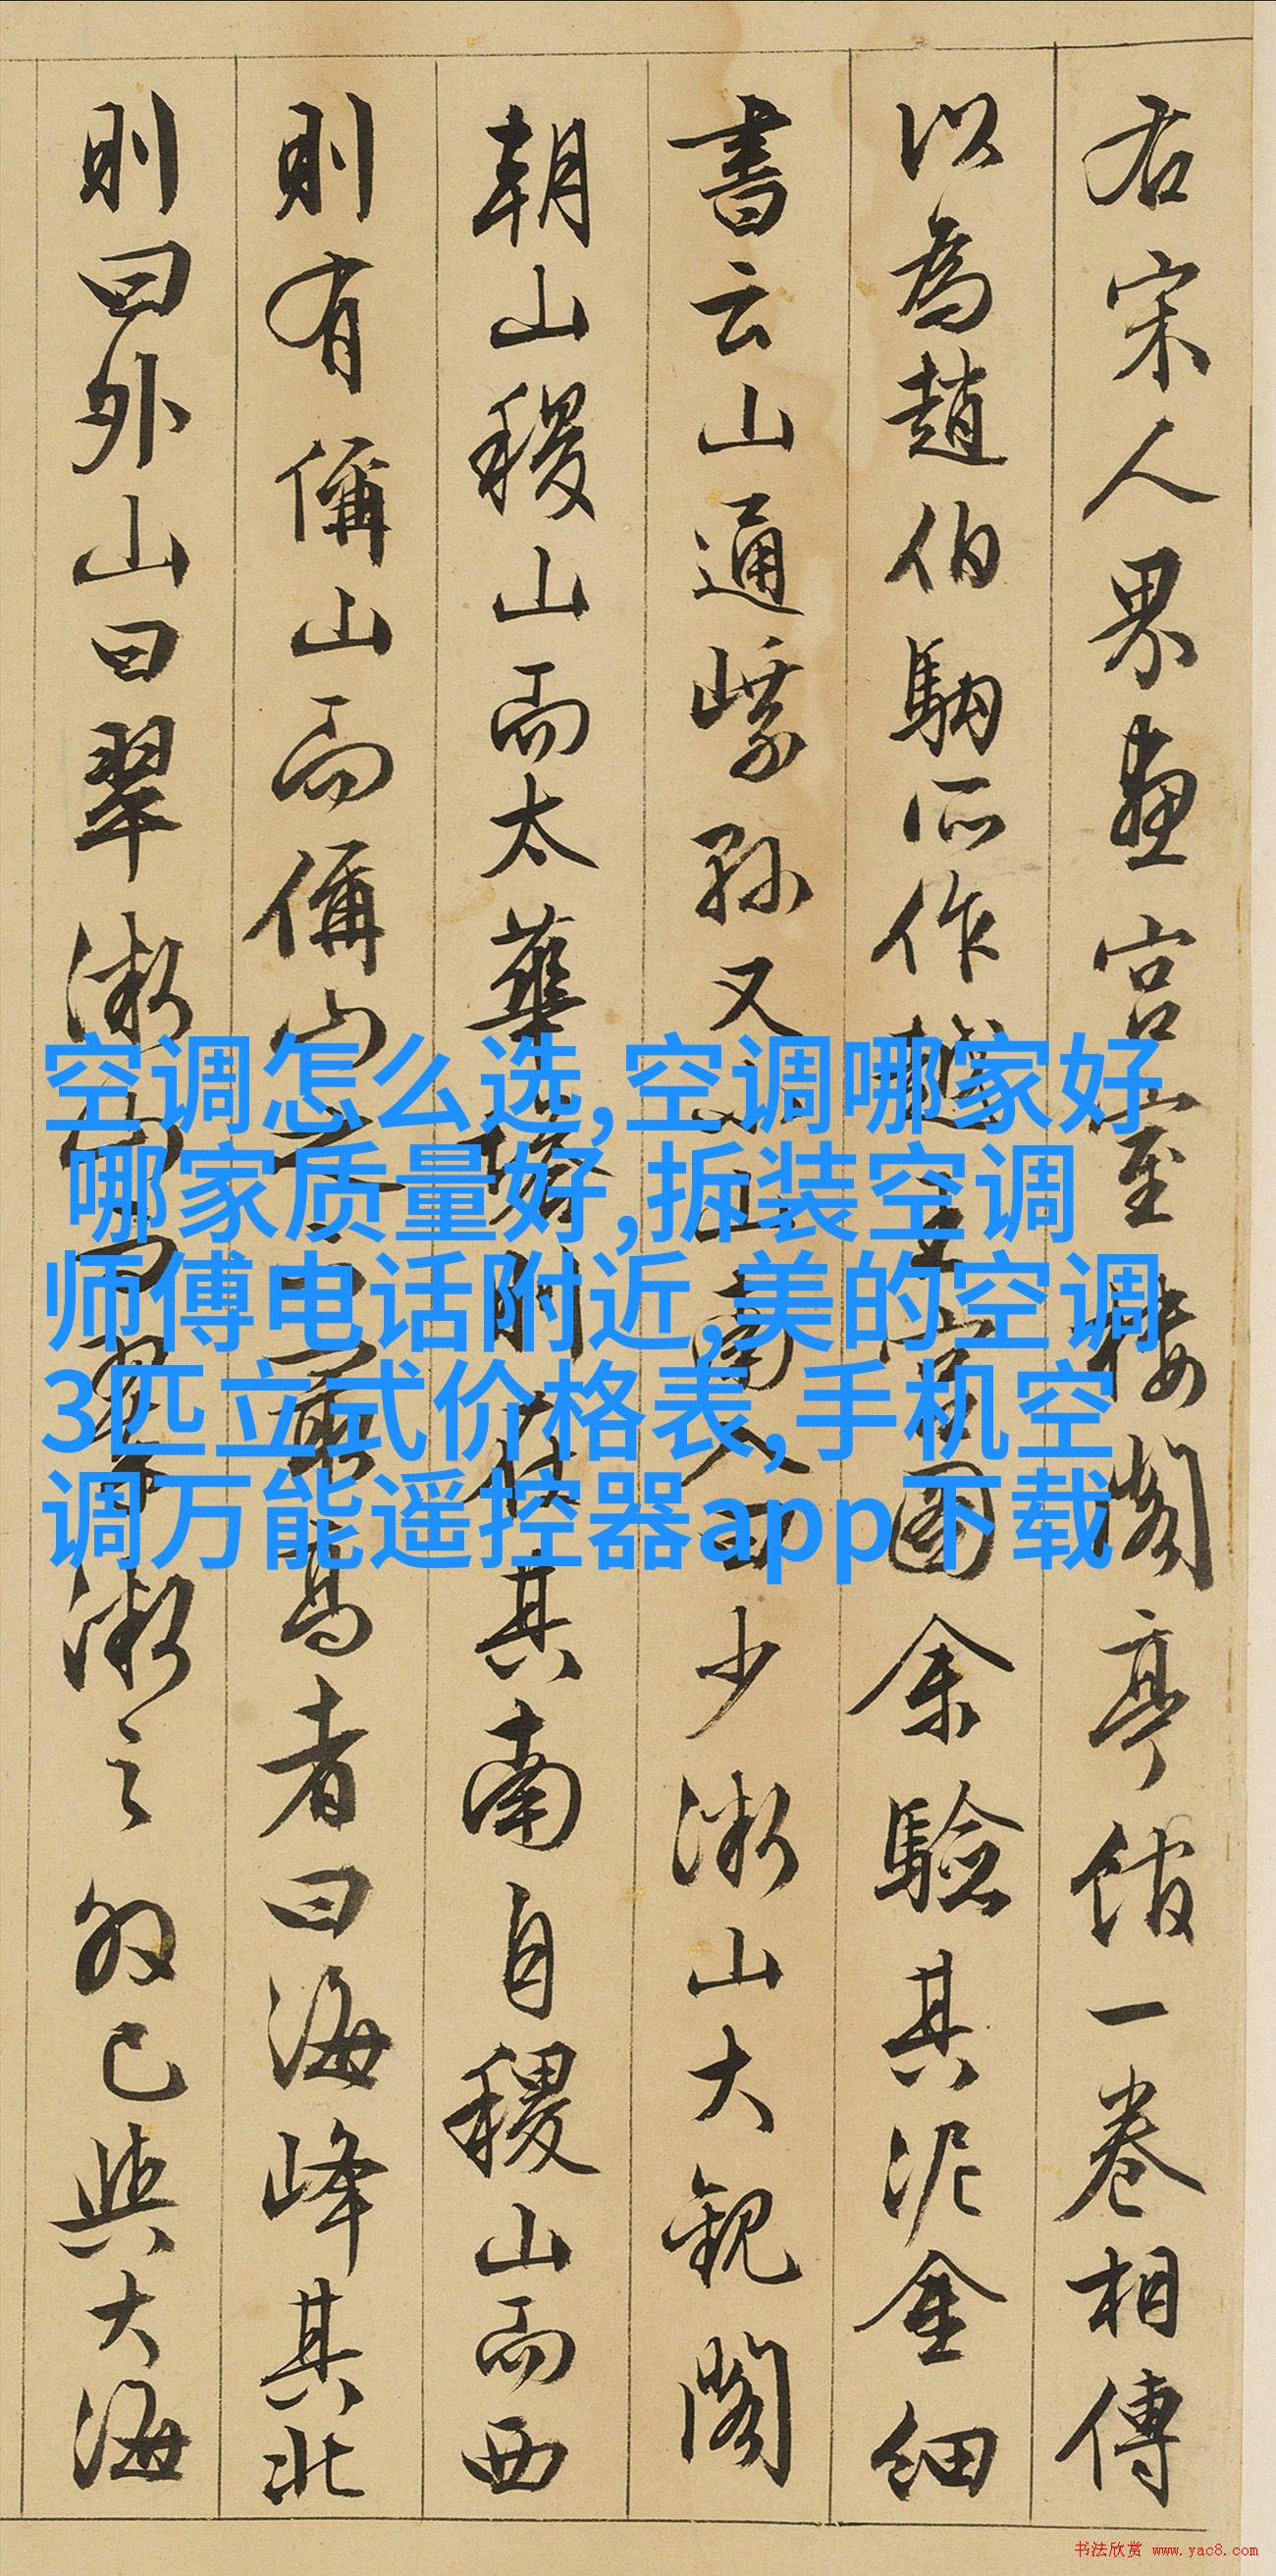 右宋人界畫宮室樓閣亭館一卷相傳
以為趙伯駒所作越王宮圖余驗其泥金細
書云山通
又
少微山大觀閣
朝山稷山而太華
附
其南自稷山而西
則有偁山而偁山
者曰海峰其北
則曰外山曰翠微
翠微之
已與大海
空调怎么选,空调哪家好
哪家质量好,拆装空调
师傅电话附近,美的空调
3匹立式价格表,手机空
调万能遥控器app下载
书法欣赏 www.yac8.com